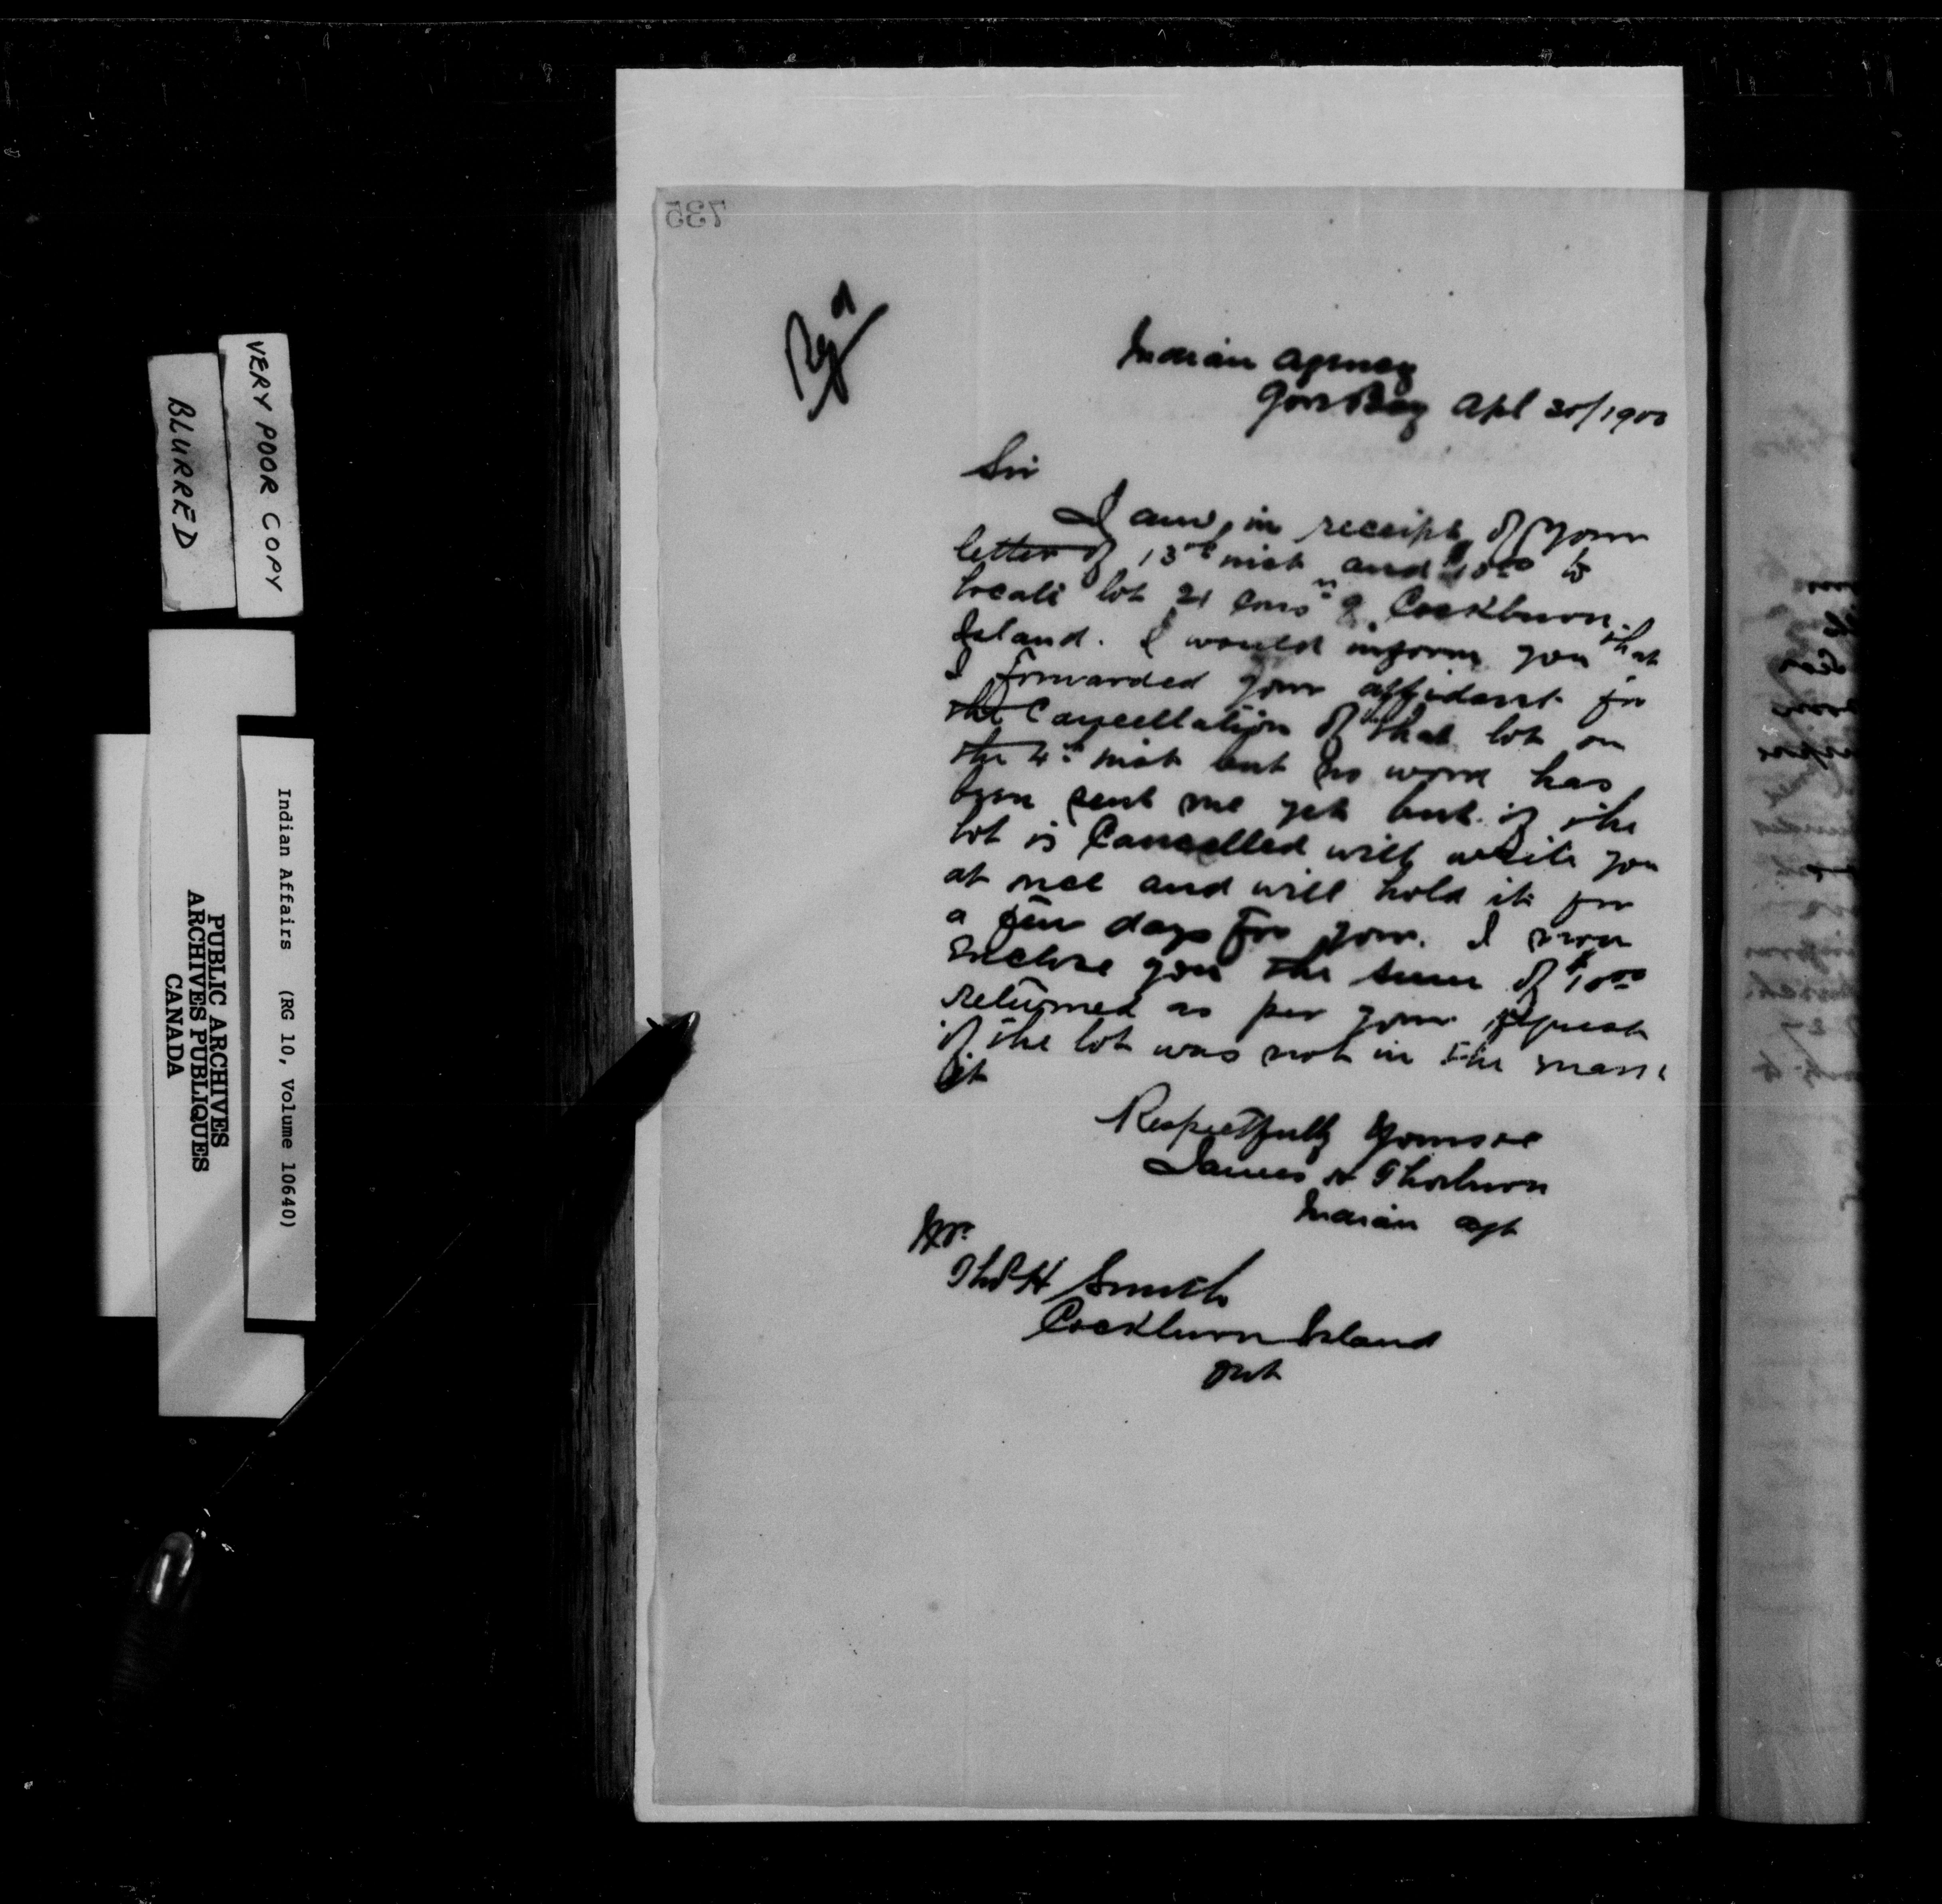 735
Reg'd
Indian Agency
Gore Bay Apl 20/1900
Sir
I am in receipt of your
letter of 13th inst and $10.00 to
locate lot 21 Con Cockburn
Island. I would inform you that
I forwarded your affidavit for
the Cancellation of that lot on
the 4th inst but no word has
been sent me yet but if the
lot is Cancelled will write you
at once and will hold it for
a few days for you. I now
enclose you the sum of $10.00
returned as per your request
if the lot was not in the market
Respectfully Yours
James H Thorburn
Indian Agt
Mr.
Thos H Smith
Cockburn Island
Ont
VERY POOR COPY
BLURRED
Indian Affairs (RG 10, Volume 10640)
PUBLIC ARCHIVES
ARCHIVES PUBLIQUES
CANADA